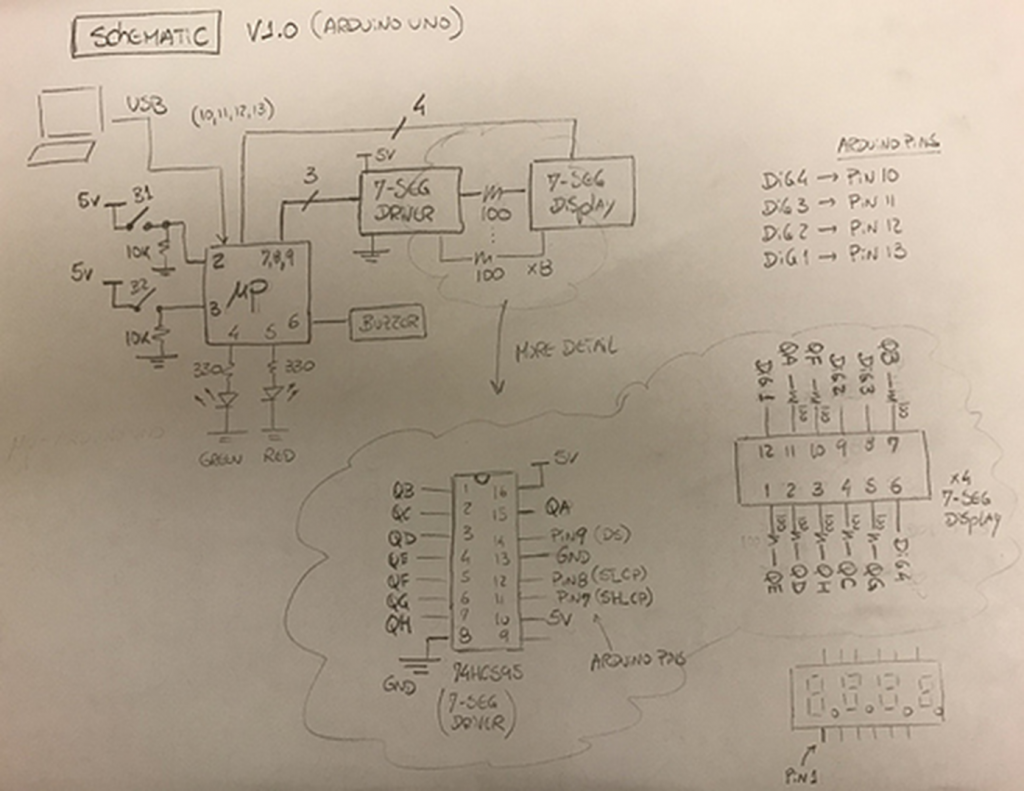 SCHEMATIC V1.0 (ARDUINO UNO)
USB
(10,11,12,13)
4
5V
3
7-SEG
DRIVER
100
100
x8
7-SEG
DISPLAY
ARDUINO PINS
DIG4 → PIN 10
DIG3 → PIN 11
DIG2 → PIN 12
DIG1 → PIN 13
5V
B1
10K
5V
B2
10K
2
7,8,9
3
µP
4
5
6
BUZZER
330
330
GREEN
RED
MORE DETAIL
DIG1
QA
100
QF
100
DIG2
DIG3
QB
100
12 11 10 9 8 7
1 2 3 4 5 6
100
100
100
100
100
QE
QD
QH
QC
QG
DIG4
x4
7-SEG
DISPLAY
5V
QB 1 16
QC 2 15 QA
QD 3 14 PIN9 (DS)
QE 4 13 GND
QF 5 12 PIN8 (SLCP)
QG 6 11 PIN7 (SHCP)
QH 7 10 5V
8 9
GND
ARDUINO PINS
74HC595
(7-SEG
DRIVER)
PIN1